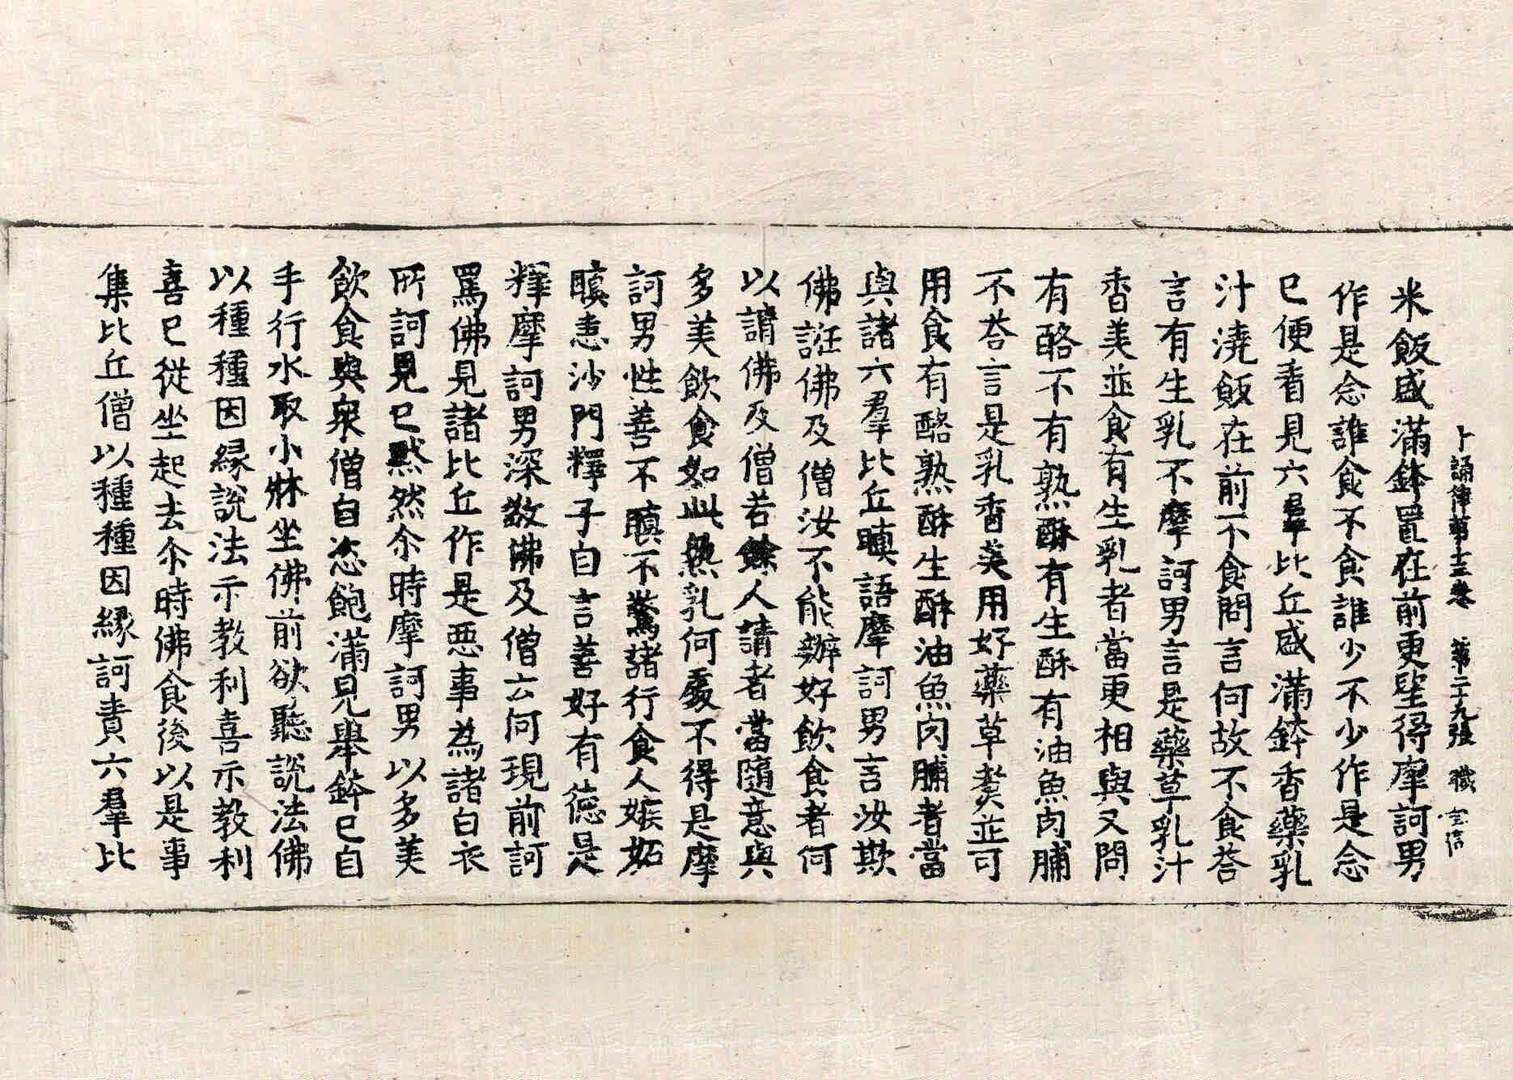 十誦律第十三卷 第二十九張 職
米飯盛滿鉢置在前更望得摩訶男
作是念誰食不食誰少不少作是念
已便看見六羣比丘盛滿鉢香藥乳
汁澆飯在前不食問言何故不食荅
言有生乳不摩訶男言是藥草乳汁
香美並食有生乳者當更相與又問
有酪不有熟酥有生酥有油魚肉脯
不荅言是乳香美用好藥草煑並可
用食有酪熟酥生酥油魚肉脯者當
與諸六羣比丘瞋語摩訶男言汝欺
佛誑佛及僧汝不能辦好飲食者何
以請佛及僧若餘人請者當隨意與
多美飲食如此熱乳何處不得是摩
訶男性善不瞋不驚諸行食人嫉妬
瞋恚沙門釋子自言善好有德是
釋摩訶男深敬佛及僧云何現前訶
罵佛見諸比丘作是惡事為諸白衣
所訶見已黙然尒時摩訶男以多美
飲食與衆僧自恣飽滿見舉鉢已自
手行水取小牀坐佛前欲聽說法佛
以種種因緣說法示教利喜示教利
喜已從坐起去尒時佛食後以是事
集比丘僧以種種因緣訶責六羣比